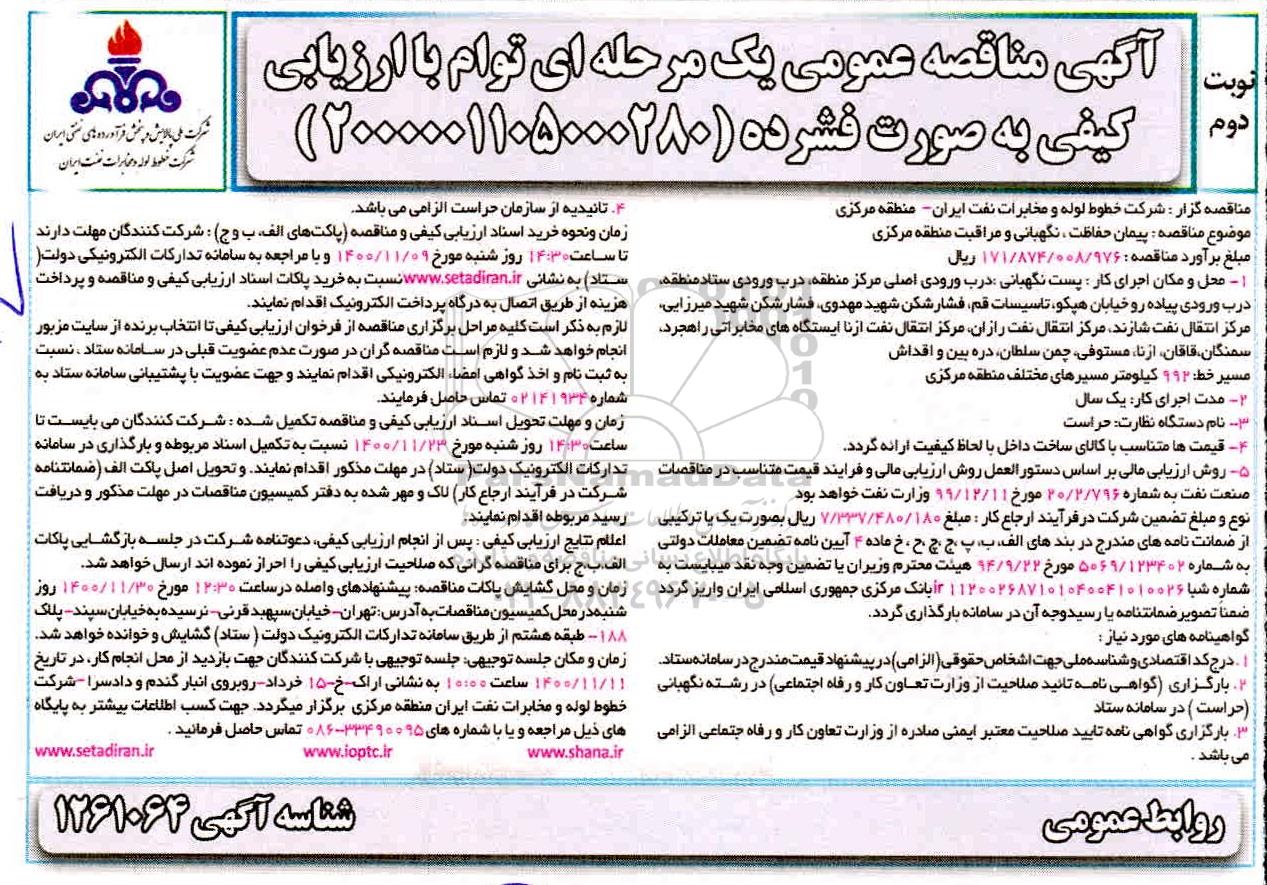 نوبت
دوم
آگهی مناقصه عمومی یک مرحله ای توام با ارزیابی
کیفی به صورت فشرده (۲۰۰۰۰۰۱۱۰۵۰۰۰۲۸۰)
شرکت ملی پالایش و پخش فرآورده های نفتی ایران
شرکت خطوط لوله و مخابرات نفت ایران
مناقصه گزار : شرکت خطوط لوله و مخابرات نفت ایران- منطقه مرکزی
موضوع مناقصه : پیمان حفاظت ، نگهبانی و مراقبت منطقه مرکزی
مبلغ برآورد مناقصه : ۱۷۱/۸۷۴/۰۰۸/۹۷۶ ریال
۱- محل و مکان اجرای کار : پست نگهبانی ،درب ورودی اصلی مرکز منطقه، درب ورودی ستاد منطقه،
درب ورودی پیاده رو خیابان هپکو، تاسیسات قم، فشارشکن شهید مهدوی، فشارشکن شهید میرزایی،
مرکز انتقال نفت شازند، مرکز انتقال نفت رازان، مرکز انتقال نفت ازنا ایستگاه های مخابراتی راهجرد،
سمنگان،قاقان، ازنا، مستوفی، چمن سلطان، دره بین و اقداش
مسیر خط: ۹۹۲ کیلومتر مسیرهای مختلف منطقه مرکزی
۲- مدت اجرای کار: یک سال
۳- نام دستگاه نظارت: حراست
۴- قیمت ها متناسب با کالای ساخت داخل با لحاظ کیفیت ارائه گردد.
۵- روش ارزیابی مالی بر اساس دستورالعمل روش ارزیابی مالی و فرایند قیمت متناسب در مناقصات
صنعت نفت به شماره ۲۰/۲/۷۹۶ مورخ ۹۹/۱۲/۱۱ وزارت نفت خواهد بود
نوع و مبلغ تضمین شرکت در فرآیند ارجاع کار : مبلغ ۷/۳۳۷/۴۸۰/۱۸۰ ریال بصورت یک یا ترکیبی
از ضمانت نامه های مندرج در بند های الف، ب، پ ،ج ،چ ،ح ، خ ماده ۴ آیین نامه تضمین معاملات دولتی
به شماره ۵۰۶۹/۱۲۳۴۰۲ مورخ ۹۴/۹/۲۲ هیئت محترم وزیران یا تضمین وجه نقد میبایست به
شماره شبا ir ۱۱۲۰۰۲۶۸۷۱۰۱۰۴۰۰۴۱۰۱۰۰۲۶ بانک مرکزی جمهوری اسلامی ایران واریز گردد
ضمناً تصویر ضمانتنامه یا رسید وجه آن در سامانه بارگذاری گردد.
گواهینامه های مورد نیاز :
۱. درج کد اقتصادی و شناسه ملی جهت اشخاص حقوقی (الزامی) در پیشنهاد قیمت مندرج در سامانه ستاد.
۲. بارگزاری (گواهی نامه تائید صلاحیت از وزارت تعاون کار و رفاه اجتماعی) در رشته نگهبانی
(حراست ) در سامانه ستاد
۳. بارگزاری گواهی نامه تایید صلاحیت معتبر ایمنی صادره از وزارت تعاون کار و رفاه جتماعی الزامی
می باشد .
۴. تائیدیه از سازمان حراست الزامی می باشد.
زمان ونحوه خرید اسناد ارزیابی کیفی و مناقصه (پاکت‌های الف، ب و ج) : شرکت کنندگان مهلت دارند
تا ساعت۱۴:۳۰ روز شنبه مورخ ۱۴۰۰/۱۱/۰۹ و با مراجعه به سامانه تدارکات الکترونیکی دولت(
ستاد) به نشانی www.setadiran.ir نسبت به خرید پاکات اسناد ارزیابی کیفی و مناقصه و پرداخت
هزینه از طریق اتصال به درگاه پرداخت الکترونیک اقدام نمایند.
لازم به ذکر است کلیه مراحل برگزاری مناقصه از فرخوان ارزیابی کیفی تا انتخاب برنده از سایت مزبور
انجام خواهد شد و لازم است مناقصه گران در صورت عدم عضویت قبلی در سامانه ستاد ، نسبت
به ثبت نام و اخذ گواهی امضاء الکترونیکی اقدام نمایند و جهت عضویت با پشتیبانی سامانه ستاد به
شماره ۰۲۱۴۱۹۳۴ تماس حاصل فرمایند.
زمان و مهلت تحویل اسناد ارزیابی کیفی و مناقصه تکمیل شده : شرکت کنندگان می بایست تا
ساعت۱۴:۳۰ روز شنبه مورخ ۱۴۰۰/۱۱/۲۳ نسبت به تکمیل اسناد مربوطه و بارگذاری در سامانه
تدارکات الکترونیک دولت( ستاد) در مهلت مذکور اقدام نمایند. و تحویل اصل پاکت الف (ضمانتنامه
شرکت در فرآیند ارجاع کار) لاک و مهر شده به دفتر کمیسیون مناقصات در مهلت مذکور و دریافت
رسید مربوطه اقدام نمایند.
اعلام نتایج ارزیابی کیفی : پس از انجام ارزیابی کیفی، دعوتنامه شرکت در جلسه بازگشایی پاکات
الف،ب،ج برای مناقصه گرانی که صلاحیت ارزیابی کیفی را احراز نموده اند ارسال خواهد شد.
زمان و محل گشایش پاکات مناقصه: پیشنهادهای واصله در ساعت ۱۲:۳۰ مورخ ۱۴۰۰/۱۱/۳۰ روز
شنبه در محل کمیسیون مناقصات به آدرس: تهران-خیابان سپهبد قرنی-نرسیده به خیابان سپند- پلاک
۱۸۸- طبقه هشتم از طریق سامانه تدارکات الکترونیک دولت ( ستاد) گشایش و خوانده خواهد شد.
زمان و مکان جلسه توجیهی: جلسه توجیهی با شرکت کنندگان جهت بازدید از محل انجام کار، در تاریخ
۱۴۰۰/۱۱/۱۱ ساعت ۱۰:۰۰ به نشانی اراک-خ-۱۵ خرداد-روبروی انبار گندم و دادسرا -شرکت
خطوط لوله و مخابرات نفت ایران منطقه مرکزی برگزار میگردد. جهت کسب اطلاعات بیشتر به پایگاه
های ذیل مراجعه و یا با شماره های ۳۳۴۹۰۰۹۵-۰۸۶ تماس حاصل فرمائید .
www.shana.ir www.ioptc.ir www.setadiran.ir
روابط عمومی
شناسه آگهی ۱۲۶۱۰۶۴
ParsNamadData